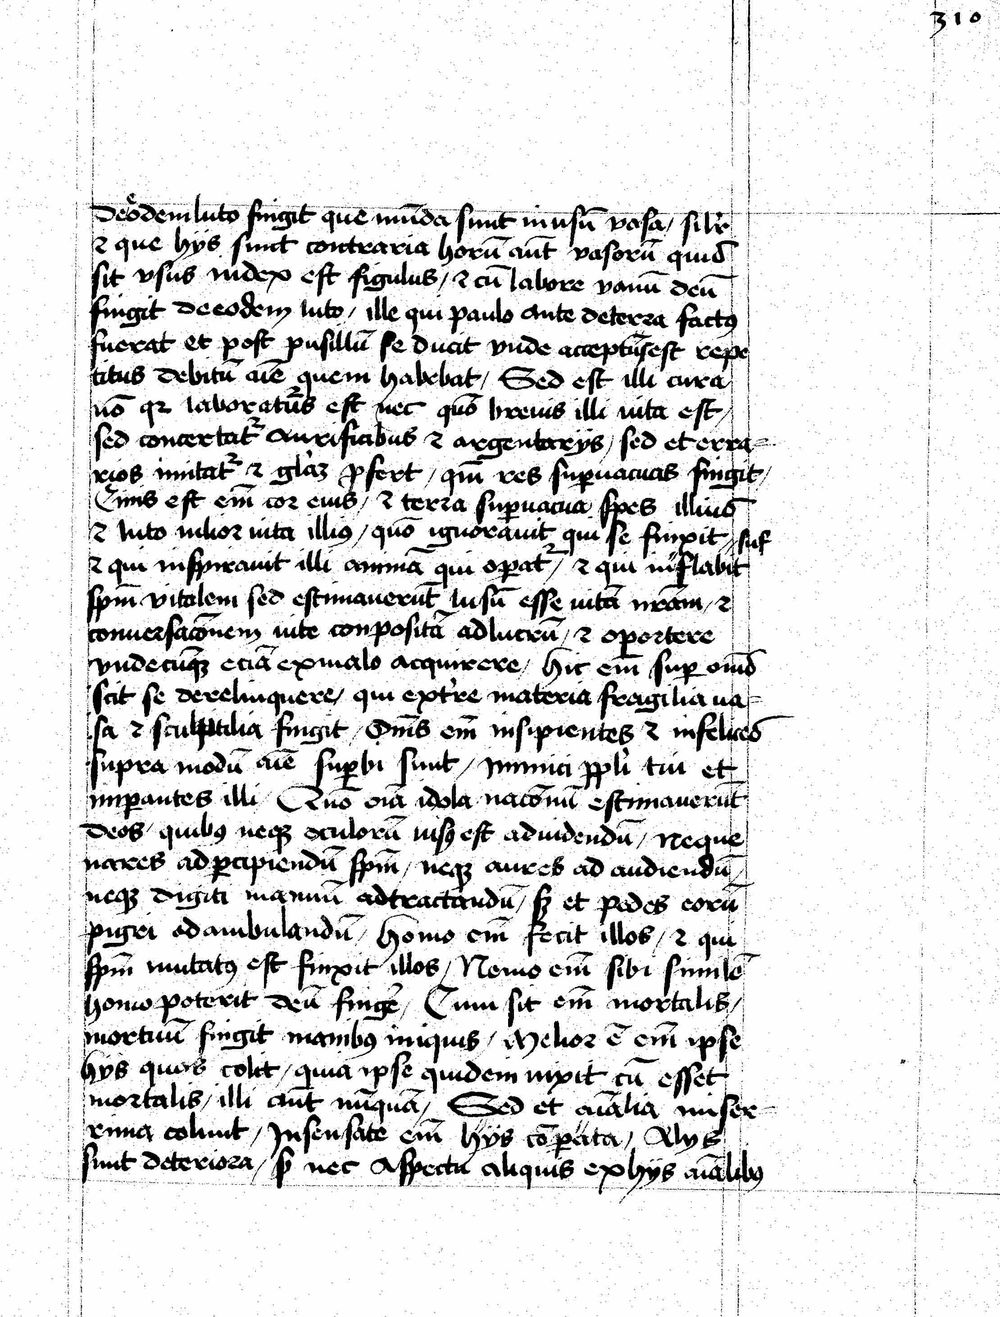 310
deeodem luto fingit que mūda sunt in usū vasa / silr̄
⁊ que hys sunt contraria horū aūt vasorū quid
sit vsus iudex est figulus / ⁊ cū labore vanū deū
fingit de eodem luto / ille qui paulo ante de terra factꝰ
fuerat et post pusillū se ducit vnde acceptus est repe
titus debitū aīe quem habebat / Sed est illi cura
nō qꝛ laboraturꝰ est nec quō breuis illi uita est /
sed concertatᷣ aurificibus ⁊ argentarijs / sed et erra-
rios imitatᷣ ⁊ gl̄aꝫ ꝓfert / qm̄ res supuacuas fingit /
Cinis est em̄ cor eius / ⁊ terra supuacua spes illius
⁊ luto vilior uita illiꝰ / quō ignorauit qui se finxit /
⁊ qui inspirauit illi animā qui opatᷣ / ⁊ qui insuflabit
spm̄ vitalem sed estimauerūt lusū esse uitā nrām / ⁊
conuersacōnem uite conpositā ad lucrū / ⁊ oportere
vndecūqꝫ eciā ex malo acquirere / Hic em̄ super om̄s
scit se derelinquere / qui ex terre materia fragilia ua-
sa ⁊ sculptilia fingit / Om̄s em̄ insipientes ⁊ infelices
supra modū aīe supbi sunt / Inimici ppl̄i tui et
impantes illi / Quō oīa idola nacōnū estimauerūt
deos / quibꝰ neqꝫ oculorū uisꝰ est ad uidendū / Neque
nares ad pcipiendū spm̄ / neqꝫ aures ad audiendū /
neqꝫ digiti manuū ad tractandū / sꝫ et pedes eorū
pigri ad ambulandū / Homo em̄ fecit illos / ⁊ qui
spm̄ mutatꝰ est finxit illos / Nemo em̄ sibi similē
homo poterit deū fingē / Cum sit em̄ mortalis /
mortuū fingit manibꝰ iniquis / Melior ē em̄ ipse
hys quos colit / quia ipse quidem uixit cū esset
mortalis / illi aūt nūquā / Sed et aīalia miser-
rima colunt / Insensate em̄ hys cōpata / Alys
sunt deteriora / sꝫ nec aspectu aliquis ex hijs aīalibꝰ